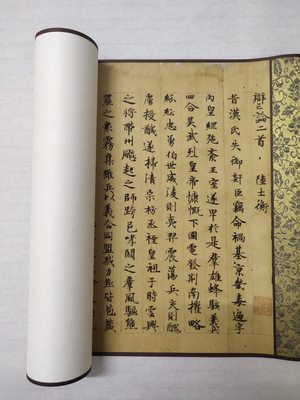 辯亡論二首，陸士衡
昔漢氏失御奸臣竊命禍基京畿毒遍宇
內皇綱弛紊王室遂卑於是群雄蜂駭義兵
四合吳武烈皇帝慷慨下國電發荊南權略
紛紜忠勇伯世威稜則夷羿震蕩兵交則醜
虜授馘遂掃清宗祊烝禋皇祖于時雲興
之將帶州飈起之師跨邑哮闞之羣風驅熊
羆之衆霧集雖兵以義合同盟戮力然皆苞藏